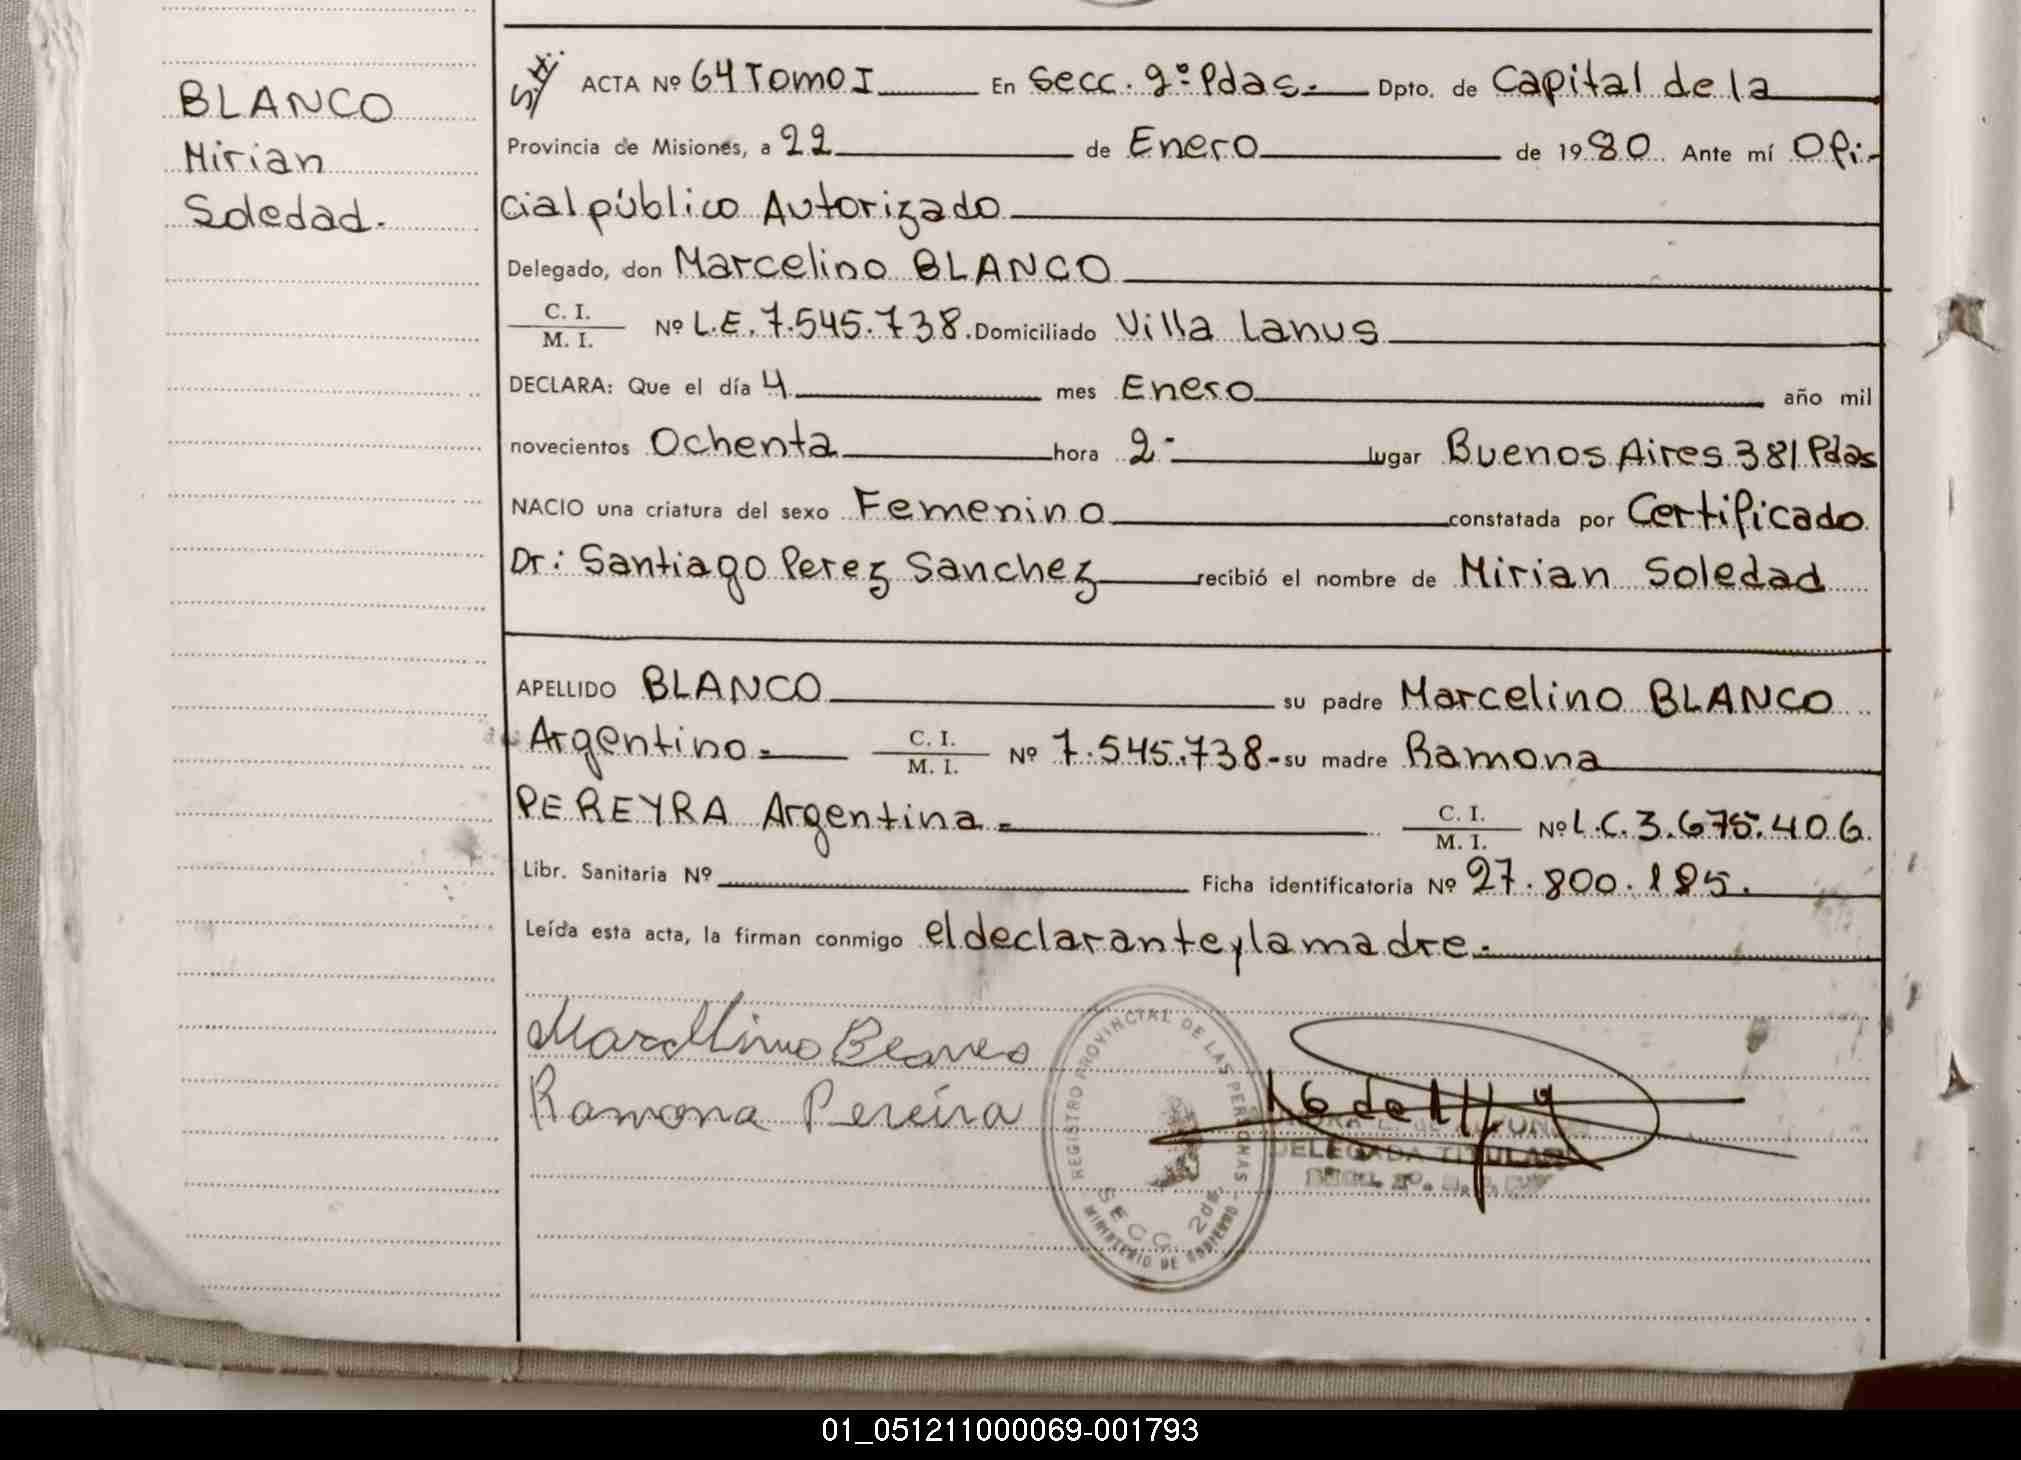 BLANCO
Mirian
Soledad.
S.H.
ACTA Nº 64 Tomo I En Secc. 2º Pdas. Dpto. de Capital de la
Provincia de Misiones, a 22 de Enero de 1980 Ante mí Ofi-
cial público Autorizado
Delegado, don Marcelino BLANCO
C. I.
M. I. Nº L.E. 7.545.738. Domiciliado Villa Lanus
DECLARA: Que el día 4 mes Enero año mil
novecientos Ochenta hora 2- lugar Buenos Aires 381 Pdas
NACIO una criatura del sexo Femenino constatada por Certificado
Dr: Santiago Perez Sanchez recibió el nombre de Mirian Soledad
APELLIDO BLANCO su padre Marcelino BLANCO
Argentino- C. I.
M. I. Nº 7.545.738- su madre Ramona
PEREYRA Argentina- C. I.
M. I. Nº L.C. 3.675.406.
Libr. Sanitaria Nº Ficha identificatoria Nº 27.800.185.
Leída esta acta, la firman conmigo el declarante y la madre.
Marcelino Blanco
Ramona Pereira
REGISTRO PROVINCIAL DE LAS PERSONAS
SECC. 2da.
MINISTERIO DE GOBIERNO
DELEGADA TITULAR
01_051211000069-001793